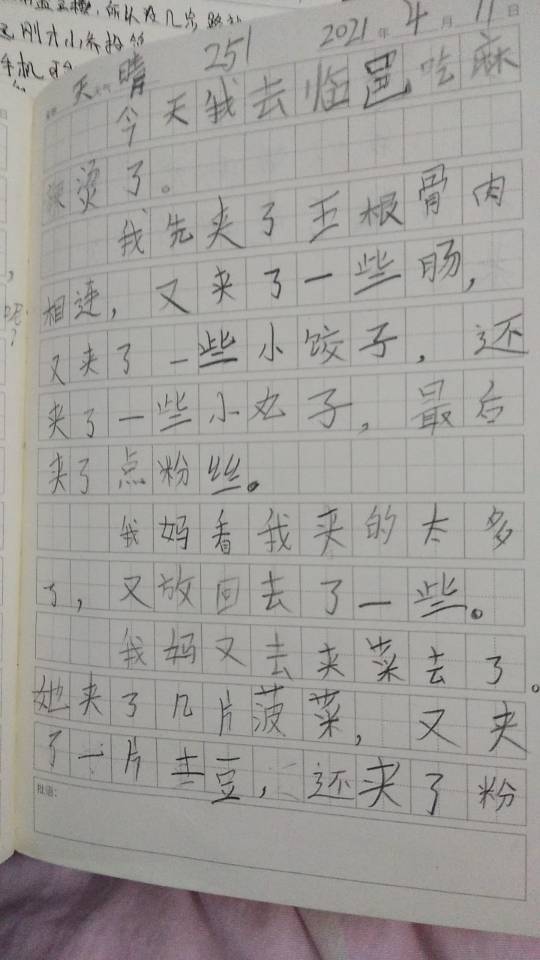 刚才小乔
手机
天气 晴 251 2021年4月11日
今天我去临邑吃麻
辣烫了。
我先夹了五根骨肉
相连，又夹了一些肠，
又夹了一些小饺子，还
夹了一些小丸子，最后
夹了点粉丝。
我妈看我夹的太多
了，又放回去了一些。
我妈又去夹菜去了。
她夹了几片菠菜，又夹
了一片土豆，还夹了粉
批语：